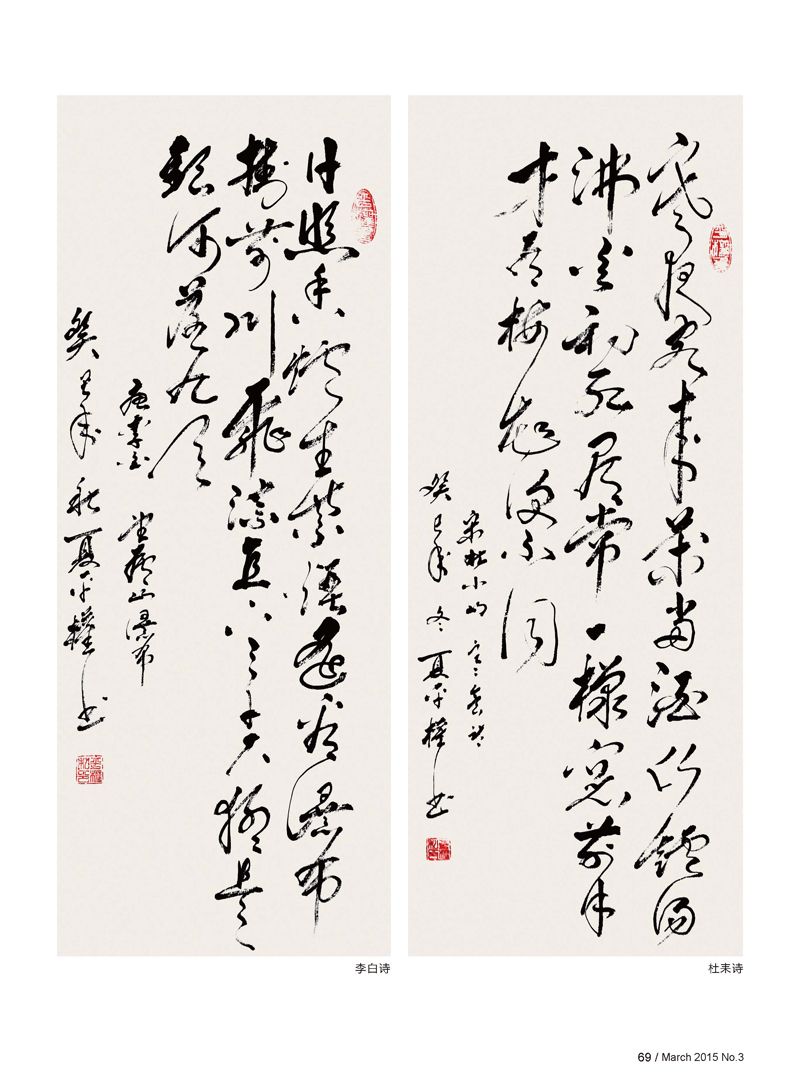 寒夜客来茶当酒竹鑪汤
沸火初红尋常一樣窗前月
才有梅花便不同
宋杜小山 寒夜诗
癸巳年冬 夏平權书
杜耒诗
日照香炉生紫烟遥看瀑布
掛前川飛流直下三千尺疑是
银河落九天
唐李白 望庐山瀑布
癸巳年秋 夏平權书
李白诗
69 / March 2015 No.3